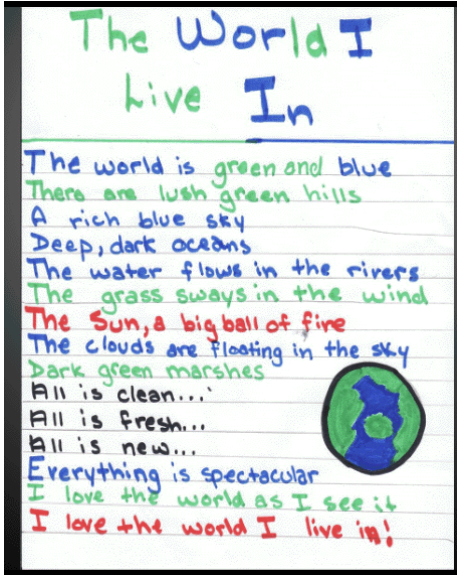 The World I
Live In
The world is green and blue
There are lush green hills
A rich blue sky
Deep, dark oceans
The water flows in the rivers
The grass sways in the wind
The Sun, a big ball of fire
The clouds are floating in the sky
Dark green marshes
All is clean...
All is fresh...
All is new...
Everything is spectacular
I love the world as I see it
I love the world I live in!